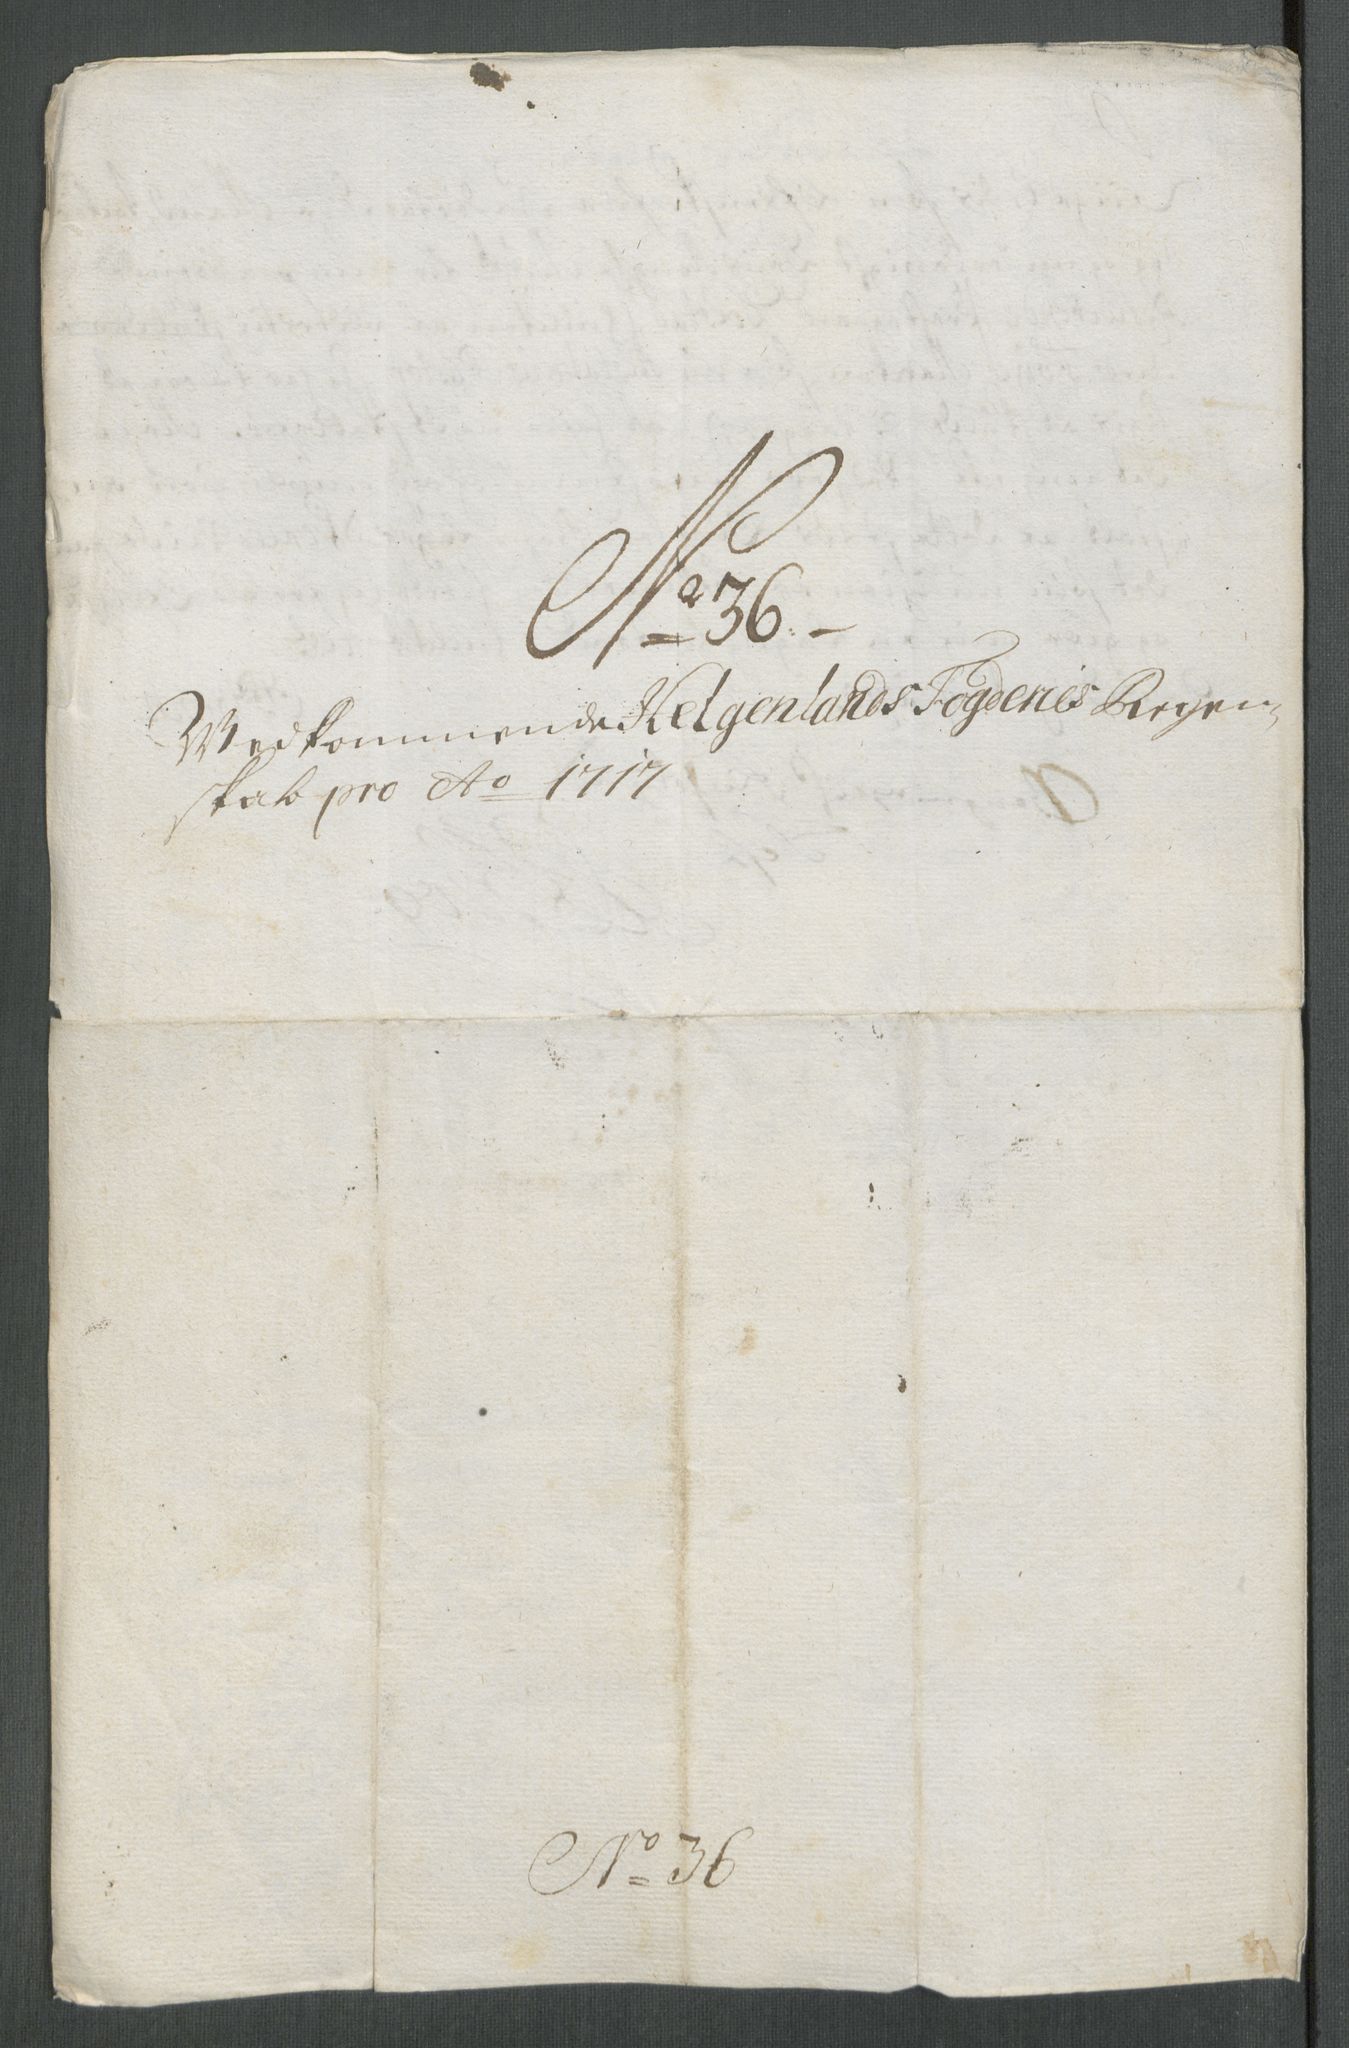 No 36.
Wedkommende Helgenlands Fogderies Regen-
skab pro Ao 1717
No 36